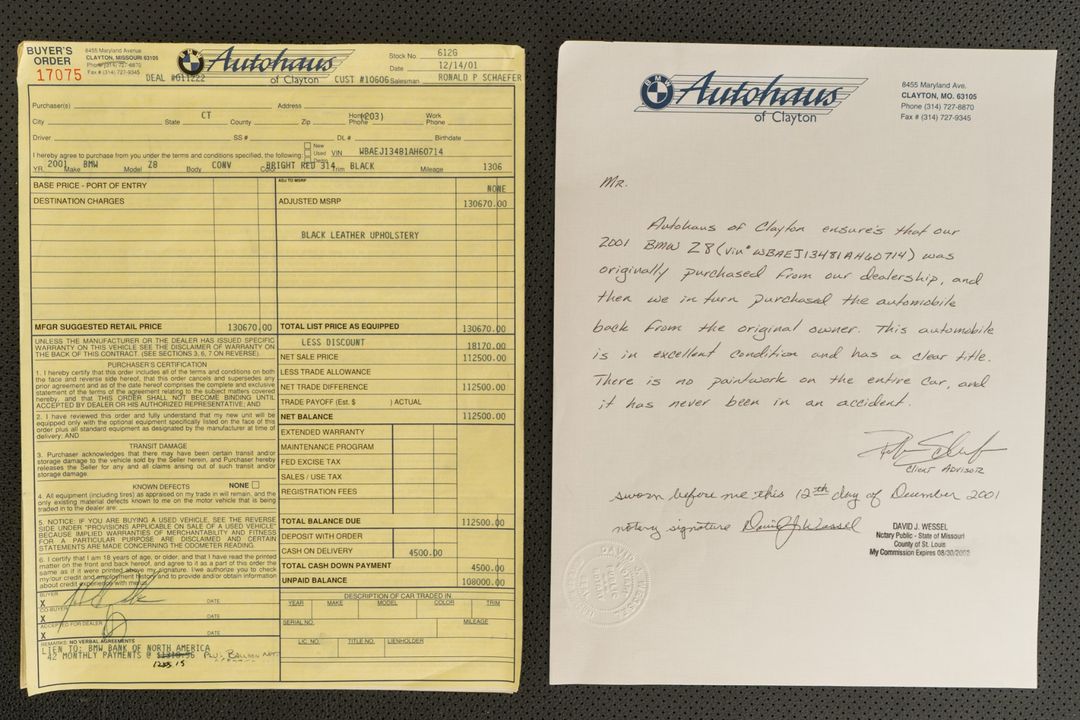 BUYER'S
ORDER
17075
8455 Maryland Avenue
CLAYTON, MISSOURI 63105
Phone (314) 727-8870
Fax # (314) 727-9345
Autohaus
of Clayton
DEAL #011222
CUST #10606
Stock No. 612G
Date 12/14/01
Salesman RONALD P SCHAEFER
Purchaser(s) Address
City State CT County Zip Home Phone (203) Work Phone
Driver SS # DL # Birthdate
I hereby agree to purchase from you under the terms and conditions specified, the following: New Used Demo VIN WBAEJ13481AH60714
YR. 2001 Make BMW Model Z8 Body CONV Color BRIGHT RED 314 Trim BLACK Mileage 1306
BASE PRICE - PORT OF ENTRY
ADJ TO MSRP NONE
DESTINATION CHARGES
ADJUSTED MSRP 130670.00
BLACK LEATHER UPHOLSTERY
MFGR SUGGESTED RETAIL PRICE 130670.00
TOTAL LIST PRICE AS EQUIPPED 130670.00
UNLESS THE MANUFACTURER OR THE DEALER HAS ISSUED SPECIFIC
WARRANTY ON THIS VEHICLE SEE THE DISCLAIMER OF WARRANTY ON
THE BACK OF THIS CONTRACT. (SEE SECTIONS 3, 6, 7 ON REVERSE).
PURCHASER'S CERTIFICATION
1. I hereby certify that this order includes all of the terms and conditions on both
the face and reverse side hereof, that this order cancels and supersedes any
prior agreement and as of the date hereof comprises the complete and exclusive
statement of the terms of the agreement relating to the subject matters covered
hereby, and that THIS ORDER SHALL NOT BECOME BINDING UNTIL
ACCEPTED BY DEALER OR HIS AUTHORIZED REPRESENTATIVE; AND
2. I have reviewed this order and fully understand that my new unit will be
equipped only with the optional equipment specifically listed on the face of this
order plus all standard equipment as designated by the manufacturer at time of
delivery; AND
TRANSIT DAMAGE
3. Purchaser acknowledges that there may have been certain transit and/or
storage damage to the vehicle sold by the Seller herein, and Purchaser hereby
releases the Seller for any and all claims arising out of such transit and/or
storage damage.
KNOWN DEFECTS NONE
4. All equipment (including tires) as appraised on my trade in will remain, and the
only existing material defects known to me on the motor vehicle that is being
traded in to the dealer are:
5. NOTICE: IF YOU ARE BUYING A USED VEHICLE, SEE THE REVERSE
SIDE UNDER "PROVISIONS APPLICABLE ON SALE OF A USED VEHICLE"
BECAUSE IMPLIED WARRANTIES OF MERCHANTABILITY AND FITNESS
FOR A PARTICULAR PURPOSE ARE DISCLAIMED AND CERTAIN
STATEMENTS ARE MADE CONCERNING THE ODOMETER READING.
6. I certify that I am 18 years of age, or older, and that I have read the printed
matter on the front and back hereof, and agree to it as a part of this order the
same as if it were printed above my signature. I we authorize you to check
my/our credit and employment history and to provide and/or obtain information
about credit experience with me/us.
LESS DISCOUNT 18170.00
NET SALE PRICE 112500.00
LESS TRADE ALLOWANCE
NET TRADE DIFFERENCE 112500.00
TRADE PAYOFF (Est. $ ) ACTUAL
NET BALANCE 112500.00
EXTENDED WARRANTY
MAINTENANCE PROGRAM
FED EXCISE TAX
SALES / USE TAX
REGISTRATION FEES
TOTAL BALANCE DUE 112500.00
DEPOSIT WITH ORDER
CASH ON DELIVERY 4500.00
TOTAL CASH DOWN PAYMENT 4500.00
UNPAID BALANCE 108000.00
BUYER
X DATE
CO-BUYER
X DATE
ACCEPTED FOR DEALER
X DATE
REMARKS: NO VERBAL AGREEMENTS
LIEN TO: BMW BANK OF NORTH AMERICA
42 MONTHLY PAYMENTS @ Plus Balloon
DESCRIPTION OF CAR TRADED IN
YEAR MAKE MODEL COLOR TRIM
SERIAL NO. MILEAGE
LIC. NO. TITLE NO. LIENHOLDER
BMW
Autohaus
of Clayton
8455 Maryland Ave.
CLAYTON, MO. 63105
Phone (314) 727-8870
Fax # (314) 727-9345
Mr.
Autohaus of Clayton ensure's that our
2001 BMW Z8 (vin# WBAEJ13481AH60714) was
originally purchased from our dealership, and
then we in turn purchased the automobile
back from the original owner. This automobile
is in excellent condition and has a clear title.
There is no paintwork on the entire car, and
it has never been in an accident.
Client Advisor
sworn before me this 12th day of December 2001
notary signature David J. Wessel
DAVID J. WESSEL
Notary Public - State of Missouri
County of St. Louis
My Commission Expires 08/30/2002